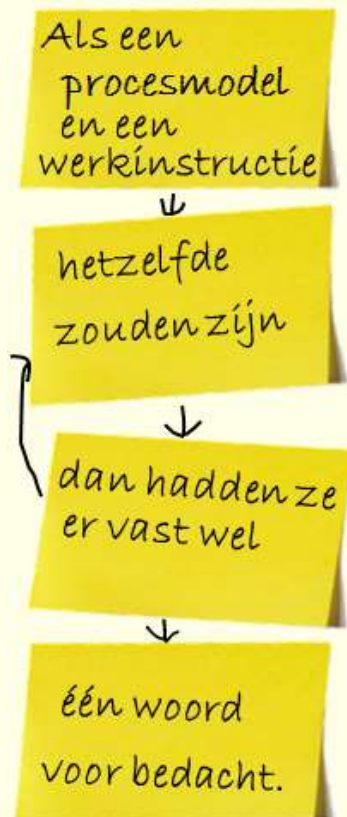 Als een
procesmodel
en een
werkinstructie
hetzelfde
zouden zijn
dan hadden ze
er vast wel
één woord
voor bedacht.